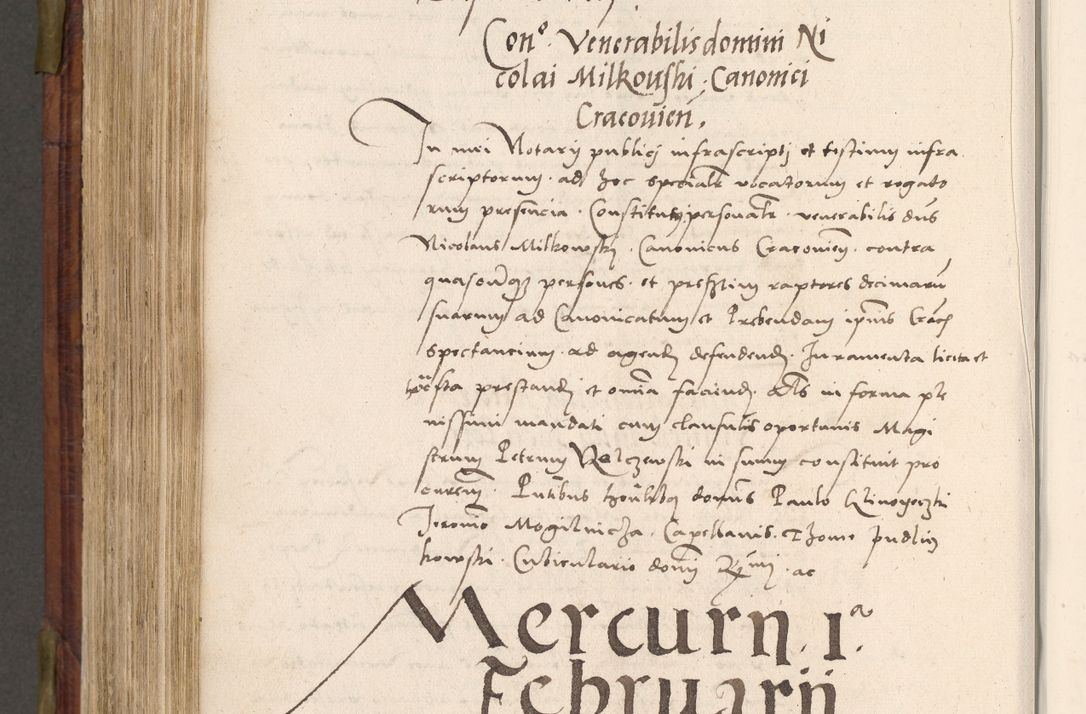 Con.º Venerabilis domini Ni
colai Milkowski Canonici
Cracovien̄.
In mei Notarij publicj infrascriptj et testium infra
scriptorum ad hoc specialr̄ vocatorum et rogato
rum presencia. Constitutꝰ personalr̄. venerabilis dn̄s
Nicolaus Milkowskj. Canonicus Cracovien̄. contra
quascūqꝫ personas. et pres̄tim raptores decimarū
suarum ad Canonicatum et Prebendam ip̄ius
spectancium. ad agend̄ defendend̄. Iuramenta licita et
prestand̄ et om̄ia faciend̄. in forma ple
nissimi mandati cum clausulis oportunis Magi
strum Petrum in suum constituit pro
curem̄. Pn̄tibus dominis Paulo
Jeronimo Mogilnicha. Capellanis. Thome Pudlin
kowski. Cubiculario domi ac
Mercurij. 1ª.
Februarij